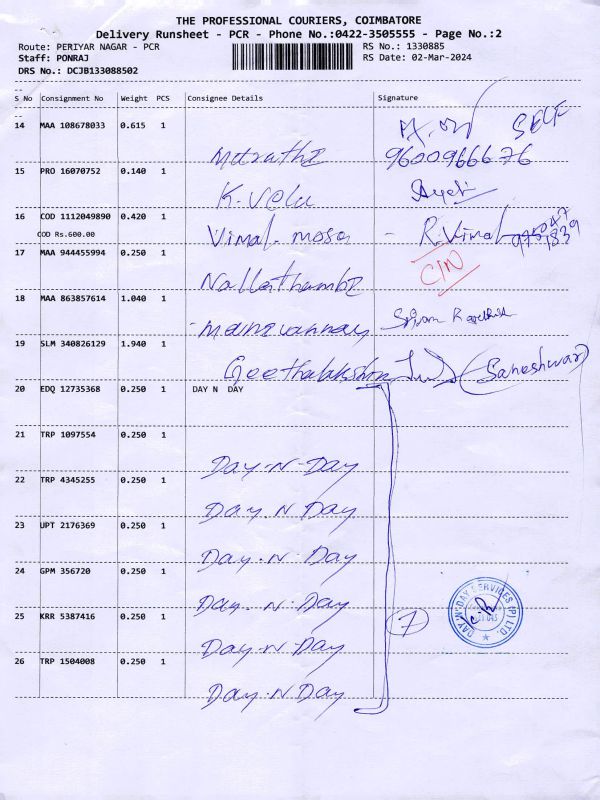 THE PROFESSIONAL COURIERS, COIMBATORE
Delivery Runsheet - PCR - Phone No.:0422-3505555 - Page No.:2
Route: PERIYAR NAGAR - PCR RS No.: 1330885
Staff: PONRAJ RS Date: 02-Mar-2024
DRS No.: DCJB133088502
S No Consignment No Weight PCS Consignee Details Signature
14 MAA 108678033 0.615 1 SELF
9600966676
15 PRO 16070752 0.140 1
K. Velu
16 COD 1112049890 0.420 1
COD Rs.600.00 Vimal. - R. Vimal
17 MAA 944455994 0.250 1 C/N
Nallathambi
18 MAA 863857614 1.040 1
manivannan
19 SLM 340826129 1.940 1
Geethalakshmi (Saneshwar)
20 EDQ 12735368 0.250 1 DAY N DAY
21 TRP 1097554 0.250 1
Day-N-Day
22 TRP 4345255 0.250 1
Day N Day
23 UPT 2176369 0.250 1
Day.N.Day
24 GPM 356720 0.250 1
Day.N.Day
25 KRR 5387416 0.250 1 7
Day.N.Day
26 TRP 1504008 0.250 1
Day.N.Day
DAY 'N' DAY SERVICES (P) LTD.